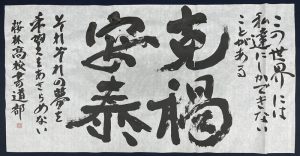 この世界には
私達にしかできない
ことがある
克禍
安泰
それぞれの夢を
をあきらめない
桜林高校書道部